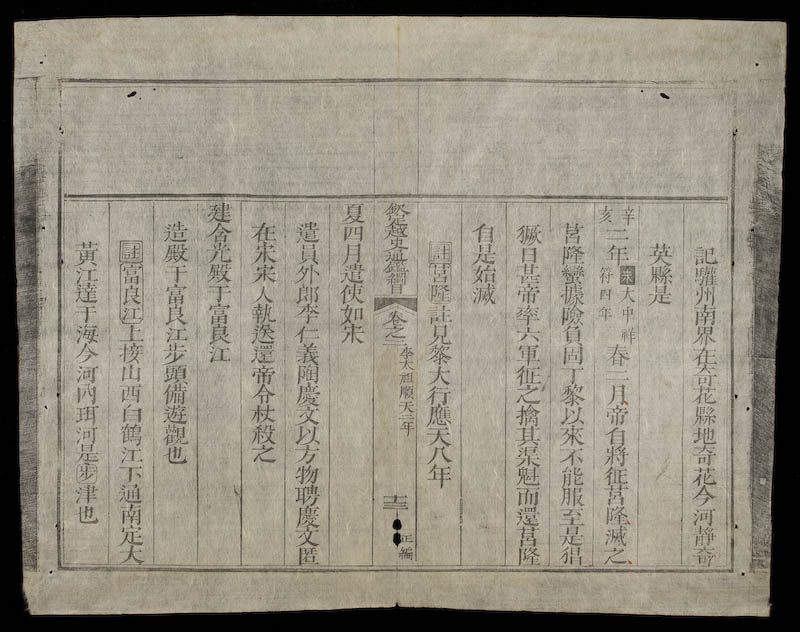 記驩州南界在奇花縣地奇花今河靜奇
英縣是
辛亥二年宋大中祥符四年春二月帝自將征莒隆滅之
莒隆蠻據險負固丁黎以來不能服至是猖
獗日甚帝率六軍征之擒其渠魁而還莒隆
自是始滅
註莒隆註見黎大行應天八年
欽定越史通鑑綱目 卷之二 李太祖順天二年 十三 正編
夏四月遣使如宋
遣員外郎李仁義陶慶文以方物聘慶文匿
在宋宋人執送還帝令杖殺之
建含光殿于富良江
造殿于富良江步頭備遊觀也
註富良江上接山西白鶴江下通南定大
黃江達于海今河內珥河是步津也